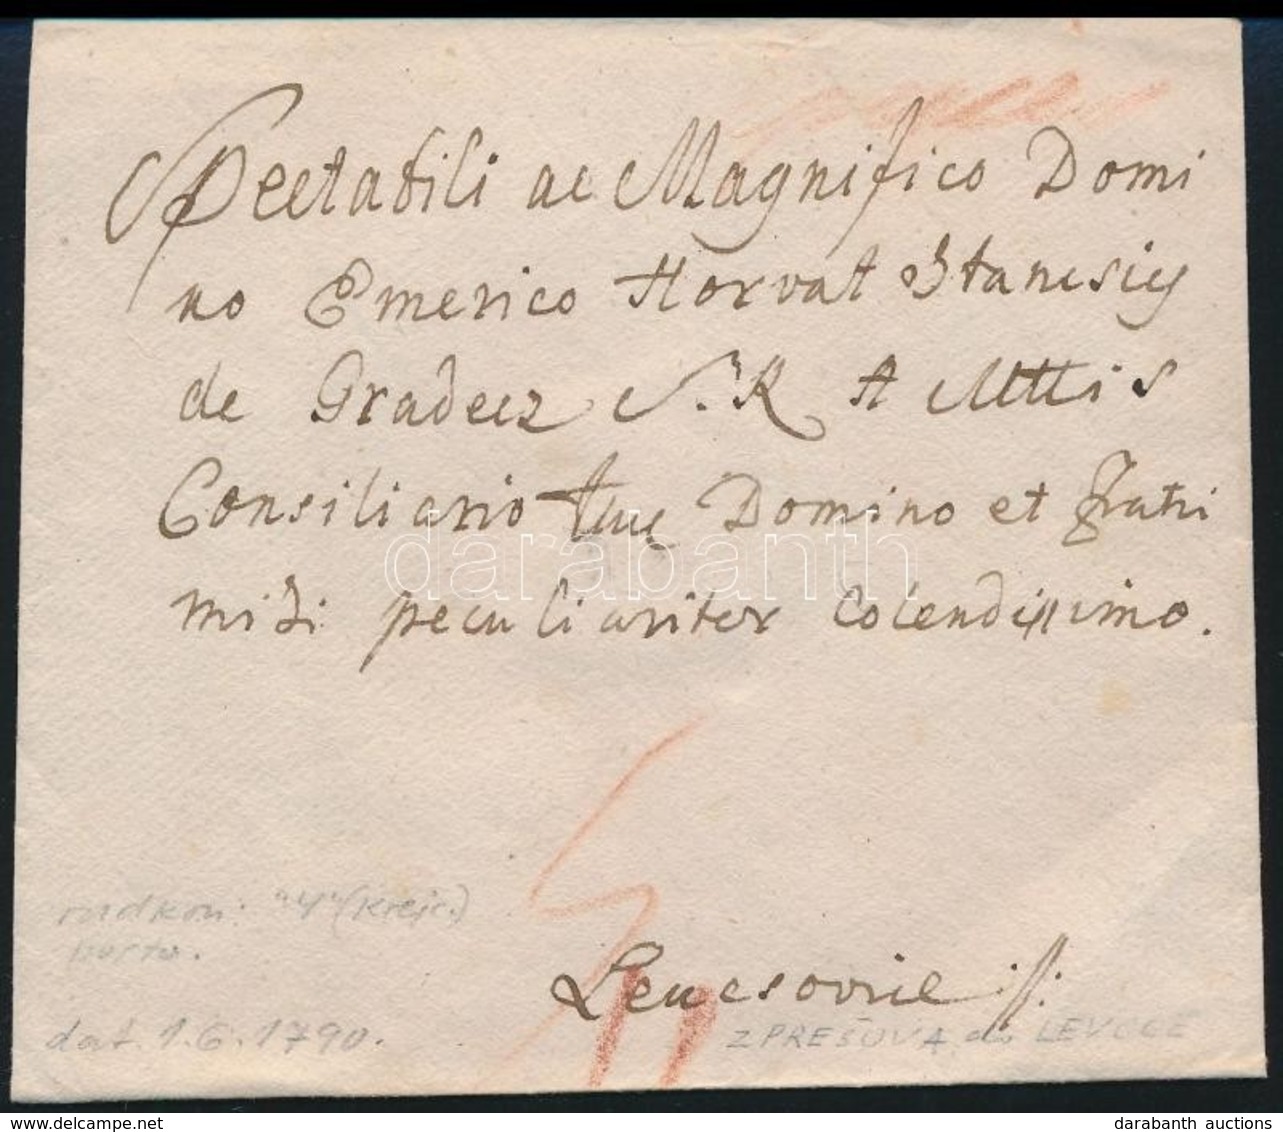 Spectabili ac Magnifico Domi
no Emerico Horvat Stancsicy
de Gradecz S. R A Mttis
Consiliario Domino et Fratri
mihi peculiariter Colendissimo.
darabanth
"4" (krejc.)
porto.
Leucsoviae
dat. 1.6.1790.
Z PREŠOVA do LEVOČE
darabanth auctions